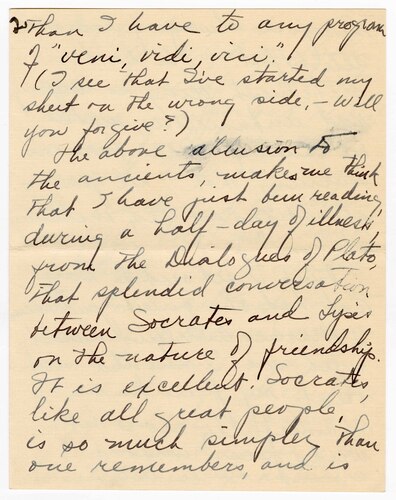 2
than I have to any program
of "veni, vidi, vici."
(I see that I've started my
sheet on the wrong side, – Will
you forgive?)
The above allusion to
the ancients, makes me think
that I have just been reading,
during a half-day of illness,
from the Dialogues of Plato,
that splendid conversation
between Socrates and Lysis
on the nature of friendship.
It is excellent. Socrates,
like all great people,
is so much simpler than
one remembers, and is